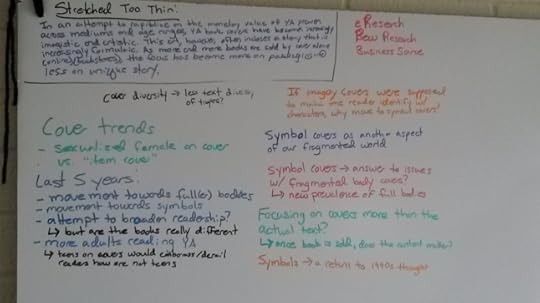 Stretched Too Thin:
In an attempt to capitalize on the monetary value of YA proven
across mediums and age ranges, YA book covers have become increasingly
imagistic and artistic. This art, however, often indexes a story that is
increasingly formulaic. As more and more books are sold by cover alone
(online/bookstores), the focus has become more on packaging
less on unique story.
eResearch
Pew Research
Business Source
Cover diversity → less text diversity
of types?
If imagery covers were supposed
to make the reader identify w/
characters, why move to symbol covers?
Cover trends
- sexualized female on cover
vs. "item cover"
Symbol covers as another aspect
of our fragmented world
Last 5 years:
- movement towards full(er) bodies
- movement towards symbols
- attempt to broaden readership?
↳ but are the books really different
- more adults reading YA
↳ teens on covers would embarrass/derail
readers who are not teens
Symbol covers → answer to issues
w/ fragmented body covers?
↳ new prevalence of full bodies
Focusing on covers more than the
actual text?
↳ once book is sold, does the content matter?
Symbols → a return to 1990s thought